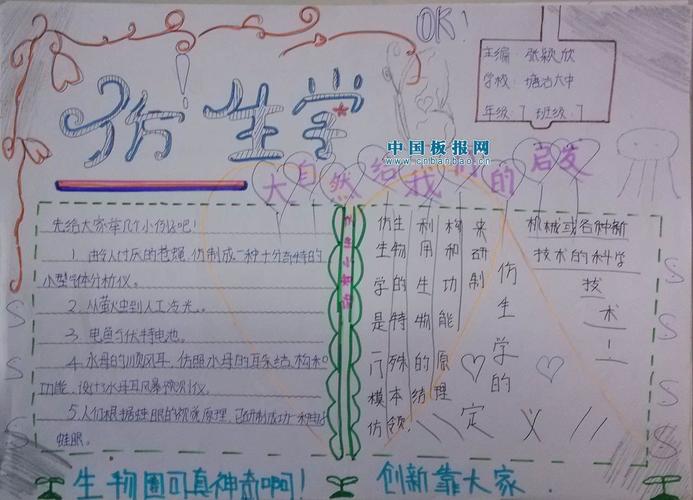 OK!
主编 张颖欣
学校: 塘沽六中
年级: 7 班级: 7
仿生学
中国板报网
www.cnbanbao.cn
大自然给我们的启发
先给大家举几个小例子吧!
1. 由令人讨厌的苍蝇,仿制成一种十分奇特的
小型气体分析仪。
2. 从萤火虫到人工冷光。
3. 电鱼与伏特电池。
4. 水母的顺风耳,仿照水母的耳朵结构和
功能,设计水母耳风暴预测仪。
5. 人们根据蛙眼的视觉原理,已研制成功一种电子
蛙眼。
仿生学是一门模仿
生物的特殊本领,
利用生物的结构
和功能原理
来研制
机械或各种新
技术的科学
技
术!
仿生学的
定义
生物圈可真神奇啊!
创新靠大家